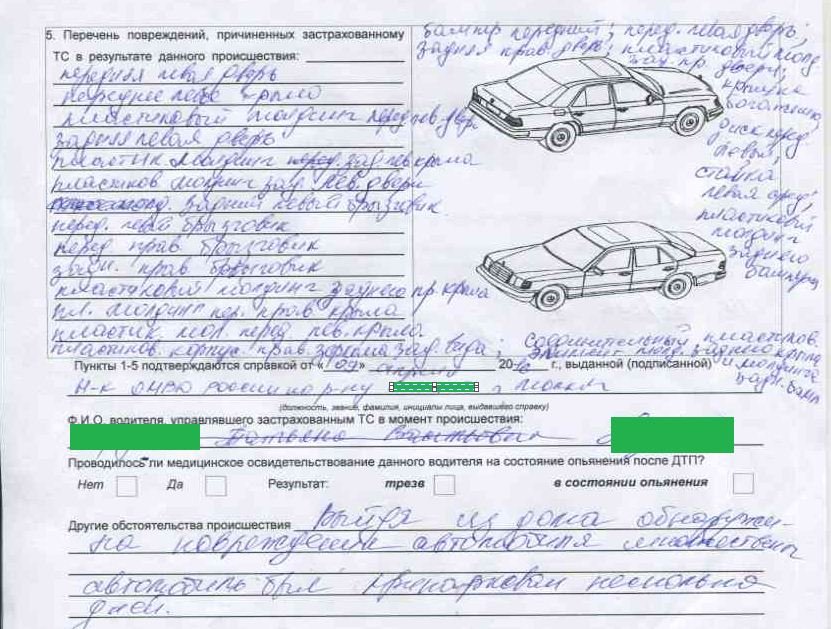 5. Перечень повреждений, причиненных застрахованному
ТС в результате данного происшествия:
передняя левая дверь
переднее левое крыло
пластиковый молдинг перед лев двери
задняя левая дверь
пластик молдинг зад лев крыла
пластиков молдинг зад. лев. двери
задний левый брызговик
перед. левый брызговик
перед прав брызговик
задн. прав брызговик
пластиковый молдинг заднего пр. крыла
пл. молдинг пер. прав крыла
пластик. мол. перед лев. крыла
пластиков. корпус. прав. зеркала зад. вида;
бампер передний; перед. левая дверь;
задняя прав. дверь; пластиковый молд
зад. пр. двери;
крышка
багажника
диск перед.
левый;
левая
пластиковый
молдинг
заднего
бампера
соединительный пластиков.
элемент заднего крыла
и молдинга
задн. бамп
Пункты 1-5 подтверждаются справкой от « » 20 г., выданной (подписанной)
(должность, звание, фамилия, инициалы лица, выдавшего справку)
Ф.И.О. водителя, управлявшего застрахованным ТС в момент происшествия:
Татьяна
Проводилось ли медицинское освидетельствование данного водителя на состояние опьянения после ДТП?
Нет Да Результат: трезв в состоянии опьянения
Другие обстоятельства происшествия Выйдя из дома обнаружи-
ла повреждения автомобиля
автомобиль был припаркован несколько
дней.